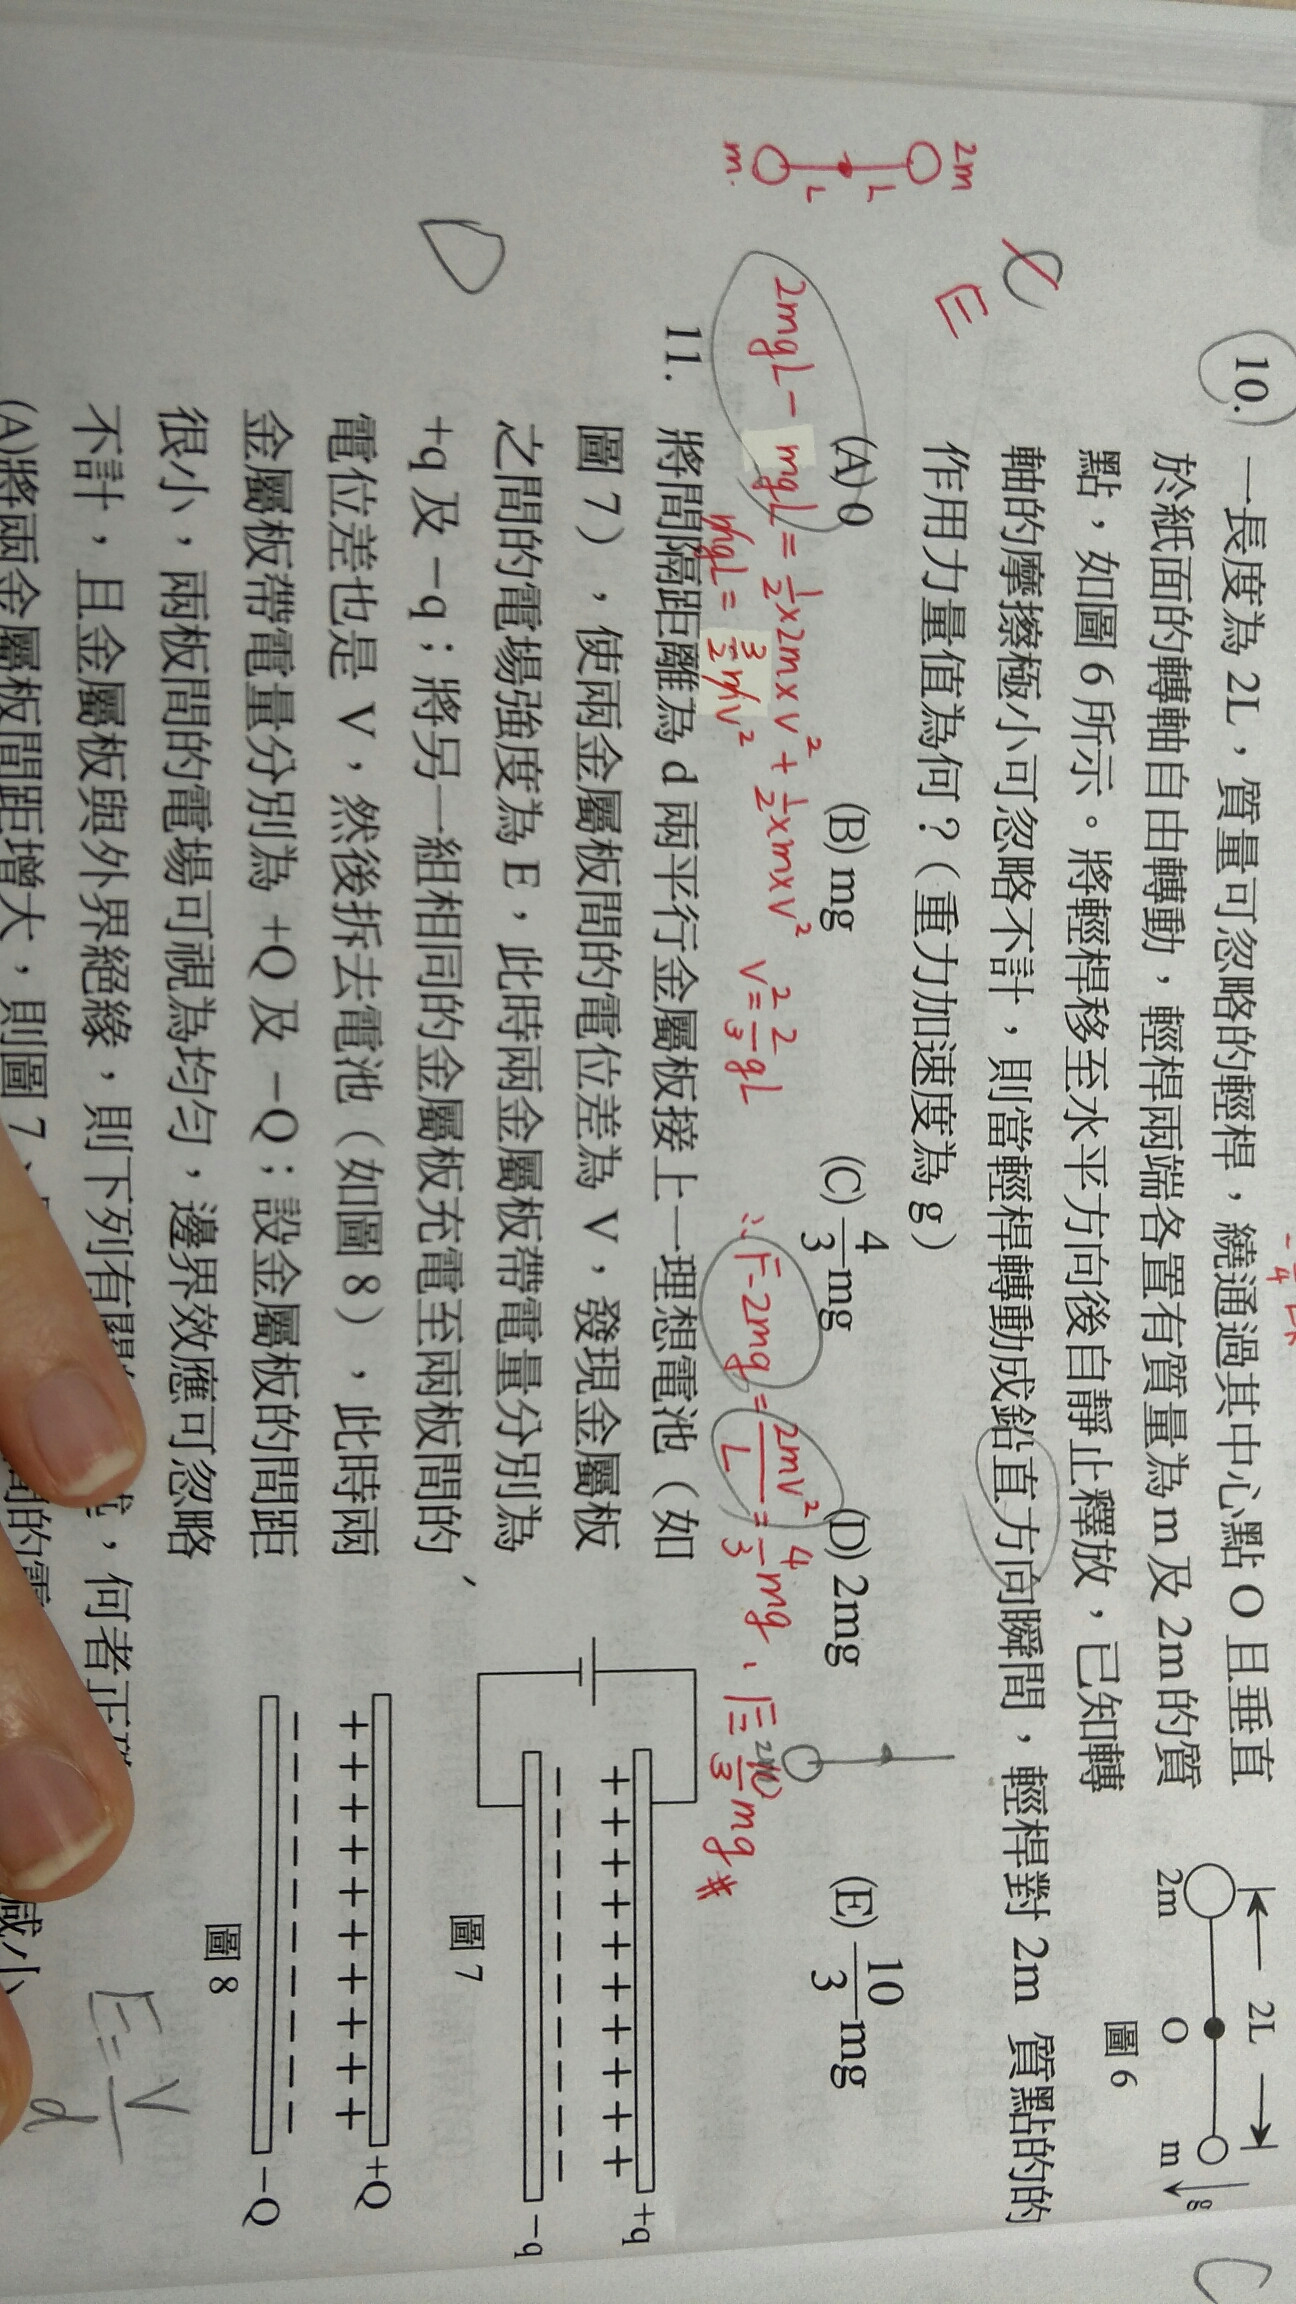 10. 一長度為 2L，質量可忽略的輕桿，繞通過其中心點 O 且垂直
於紙面的轉軸自由轉動，輕桿兩端各置有質量為 m 及 2m 的質
點，如圖 6 所示。將輕桿移至水平方向後自靜止釋放，已知轉
軸的摩擦極小可忽略不計，則當輕桿轉動成鉛直方向瞬間，輕桿對 2m 質點的的
作用力量值為何？（重力加速度為 g）
(A) 0 (B) mg (C) 4/3 mg (D) 2mg (E) 10/3 mg
2L
2m O m g
圖 6
C
E
2m
L
L
m.
2mgL - mgL = 1/2 x 2m x v² + 1/2 x m x v²
mgL = 3/2 mv²
v² = 2/3 gL
∴ F - 2mg = 2mv²/L = 4/3 mg、F = 10/3 mg #
2m
D
11. 將間隔距離為 d 兩平行金屬板接上一理想電池（如
圖 7），使兩金屬板間的電位差為 V，發現金屬板
之間的電場強度為 E，此時兩金屬板帶電量分別為
+q 及 −q；將另一組相同的金屬板充電至兩板間的
電位差也是 V，然後拆去電池（如圖 8），此時兩
金屬板帶電量分別為 +Q 及 −Q；設金屬板的間距
很小，兩板間的電場可視為均勻，邊界效應可忽略
不計，且金屬板與外界絕緣，則下列有關的 何者正確
(A)將兩金屬板間距增大，則圖 7 間的電
減小
+ + + + + + + + + +
+q
− − − − − − − − − −
−q
圖 7
+ + + + + + + + + +
+Q
− − − − − − − − − −
−Q
圖 8
E = V/d